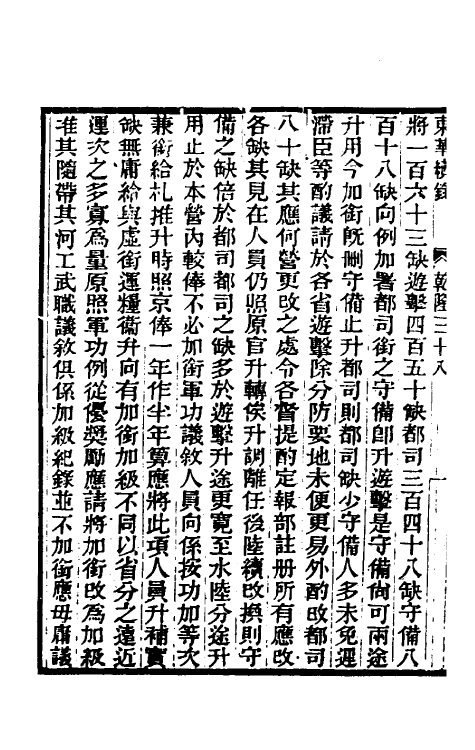 東華續錄 乾隆三十八 一
將一百六十三缺遊擊四百五十缺都司三百四十八缺守備八
百十八缺向例加署都司銜之守備卽升遊擊是守備尙可兩途
升用今加銜旣刪守備止升都司則都司缺少守備人多未免遲
滯臣等酌議請於各省遊擊除分防要地未便更易外酌改都司
八十缺其應何營更改之處令各督提酌定報部註册所有應改
各缺其見在人員仍照原官升轉俟升調離任後陸續改換則守
備之缺倍於都司都司之缺多於遊擊升途更寬至水陸分途升
用止於本營內較俸不必加銜軍功議敘人員向係按功加等次
兼銜給札推升時照京俸一年作半年算應將此項人員升補實
缺無庸給與虛銜運糧衞升向有加銜加級不同以省分之遠近
運次之多寡爲量原照軍功例從優獎勵應請將加銜改爲加級
准其隨帶其河工武職議敘俱係加級紀錄並不加銜應毋庸議